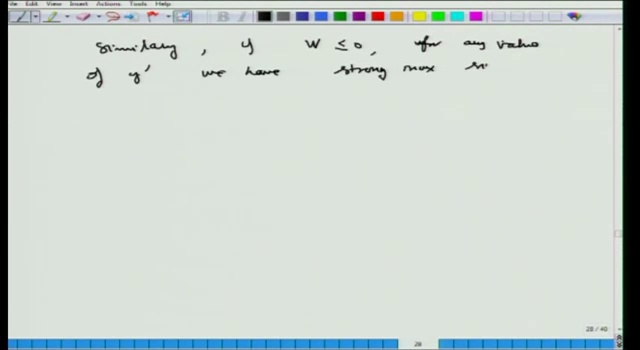 File Edit View Insert Actions Tools Help
Similary, if W ≤ 0, for any value
of y' we have strong max
28 / 40
28